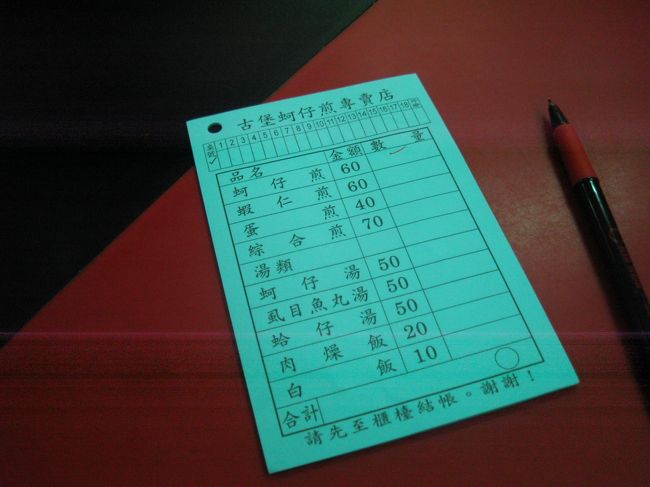 古堡蚵仔煎專賣店
桌號 1 2 3 4 5 6 7 8 9 10 11 12 13 14 15 16 17 18
品名 金額 數量
蚵仔煎 60
蝦仁煎 60
蛋煎 40
綜合煎 70
湯類
蚵仔湯 50
虱目魚丸湯 50
蛤仔湯 50
肉燥飯 20
白飯 10
合計
請先至櫃檯結帳。謝謝！